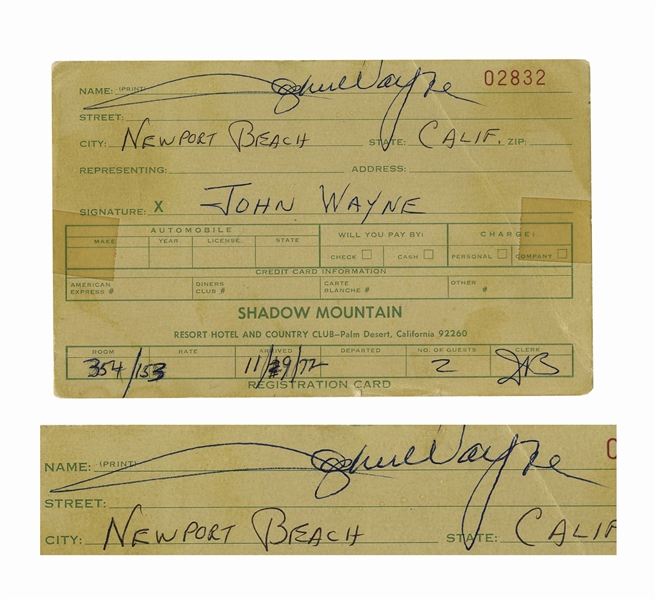 NAME: (PRINT) John Wayne 02832
STREET:
CITY: NEWPORT BEACH STATE: CALIF. ZIP:
REPRESENTING: ADDRESS:
SIGNATURE: X JOHN WAYNE
AUTOMOBILE WILL YOU PAY BY: CHARGE:
MAKE YEAR LICENSE STATE CHECK CASH PERSONAL COMPANY
CREDIT CARD INFORMATION
AMERICAN EXPRESS # DINERS CLUB # CARTE BLANCHE # OTHER #
SHADOW MOUNTAIN
RESORT HOTEL AND COUNTRY CLUB–Palm Desert, California 92260
ROOM RATE ARRIVED DEPARTED NO. OF GUESTS CLERK
354/153 11/29/72 2
REGISTRATION CARD
NAME: (PRINT) John Wayne
STREET:
CITY: NEWPORT BEACH STATE: CALIF